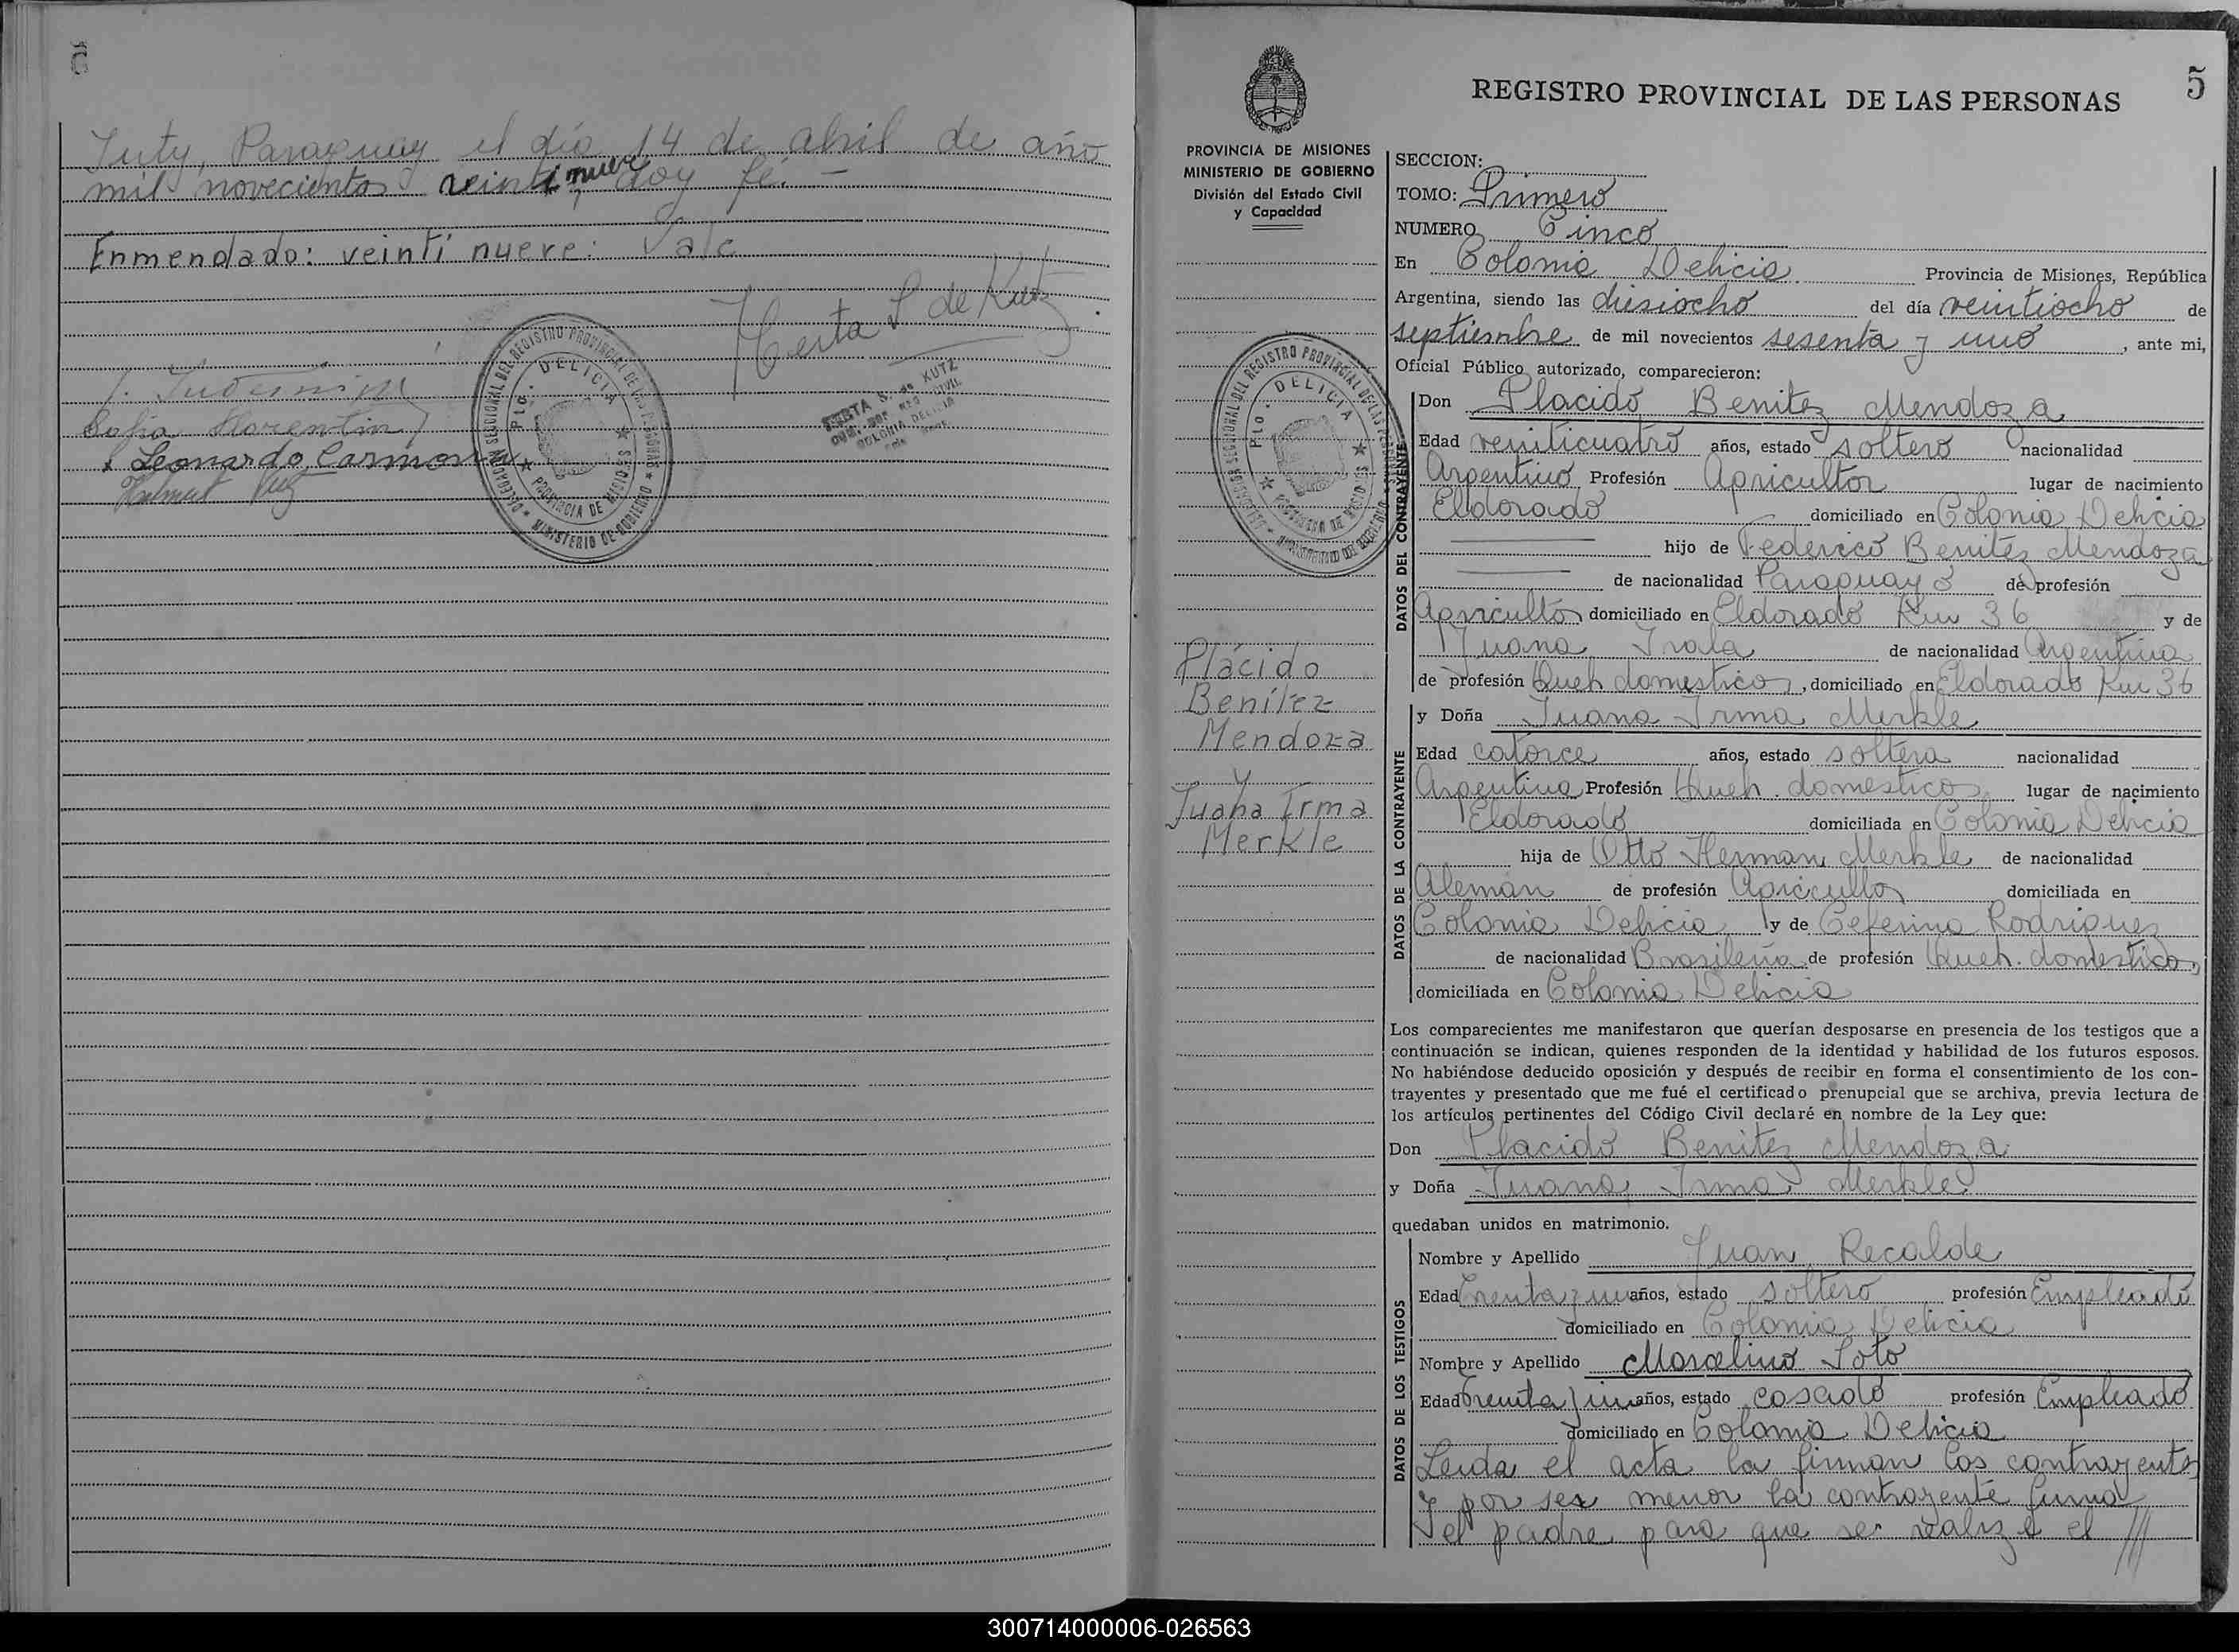 Yuty, Paraguay el día 14 de abril de año
mil novecientos veinti nueve doy fé. —
Enmendado: veinti nueve: Vale
Herta S de Kutz
Sofia Florentin
Leonardo Carmona
Helmut Kutz
DELEGACION SECCIONAL DEL REGISTRO PROVINCIAL DE LAS PERSONAS
Pto. DELICIA
PROVINCIA DE MISIONES
MINISTERIO DE GOBIERNO
HERTA S. de KUTZ
COLONIA DELICIA
5
REGISTRO PROVINCIAL DE LAS PERSONAS
PROVINCIA DE MISIONES
MINISTERIO DE GOBIERNO
División del Estado Civil
y Capacidad
DELEGACION SECCIONAL DEL REGISTRO PROVINCIAL DE LAS PERSONAS
Pto. DELICIA
PROVINCIA DE MISIONES
Plácido
Benítez
Mendoza
y
Juana Irma
Merkle
SECCION:
TOMO: Primero
NUMERO Cinco
En Colonia Delicia Provincia de Misiones, República
Argentina, siendo las diesiocho del día veintiocho de
septiembre de mil novecientos sesenta y uno, ante mi,
Oficial Público autorizado, comparecieron:
DATOS DEL CONTRAYENTE
Don Placido Benitez Mendoza
Edad veiniticuatro años, estado soltero nacionalidad
Argentino Profesión Agricultor lugar de nacimiento
Eldorado domiciliado en Colonia Delicia
hijo de Federico Benitez Mendoza
de nacionalidad Paraguayo de profesión
Agricultor domiciliado en Eldorado Km 36 y de
Juana Irala de nacionalidad Argentina
de profesión Queh domesticos, domiciliado en Eldorado Km 36
DATOS DE LA CONTRAYENTE
y Doña Juana Irma Merkle
Edad catorce años, estado soltera nacionalidad
Argentina Profesión Queh. domesticos lugar de nacimiento
Eldorado domiciliada en Colonia Delicia
hija de Otto Herman Merkle de nacionalidad
Alemán de profesión Agricultor domiciliada en
Colonia Delicia y de Ceferina Rodriguez
de nacionalidad Brasileña de profesión Queh. domesticos,
domiciliada en Colonia Delicia
Los comparecientes me manifestaron que querían desposarse en presencia de los testigos que a
continuación se indican, quienes responden de la identidad y habilidad de los futuros esposos.
No habiéndose deducido oposición y después de recibir en forma el consentimiento de los con-
trayentes y presentado que me fué el certificado prenupcial que se archiva, previa lectura de
los artículos pertinentes del Código Civil declaré en nombre de la Ley que:
Don Placido Benitez Mendoza
y Doña Juana Irma Merkle
quedaban unidos en matrimonio.
DATOS DE LOS TESTIGOS
Nombre y Apellido Juan Recalde
Edad Treinta y un años, estado soltero profesión Empleado
domiciliado en Colonia Delicia
Nombre y Apellido Marcelino Soto
Edad Treinta y un años, estado casado profesión Empleado
domiciliado en Colonia Delicia
Leida el acta la firman los contrayentes
y por ser menor la contrayente firma
el padre para que se realize el ///
300714000006-026563